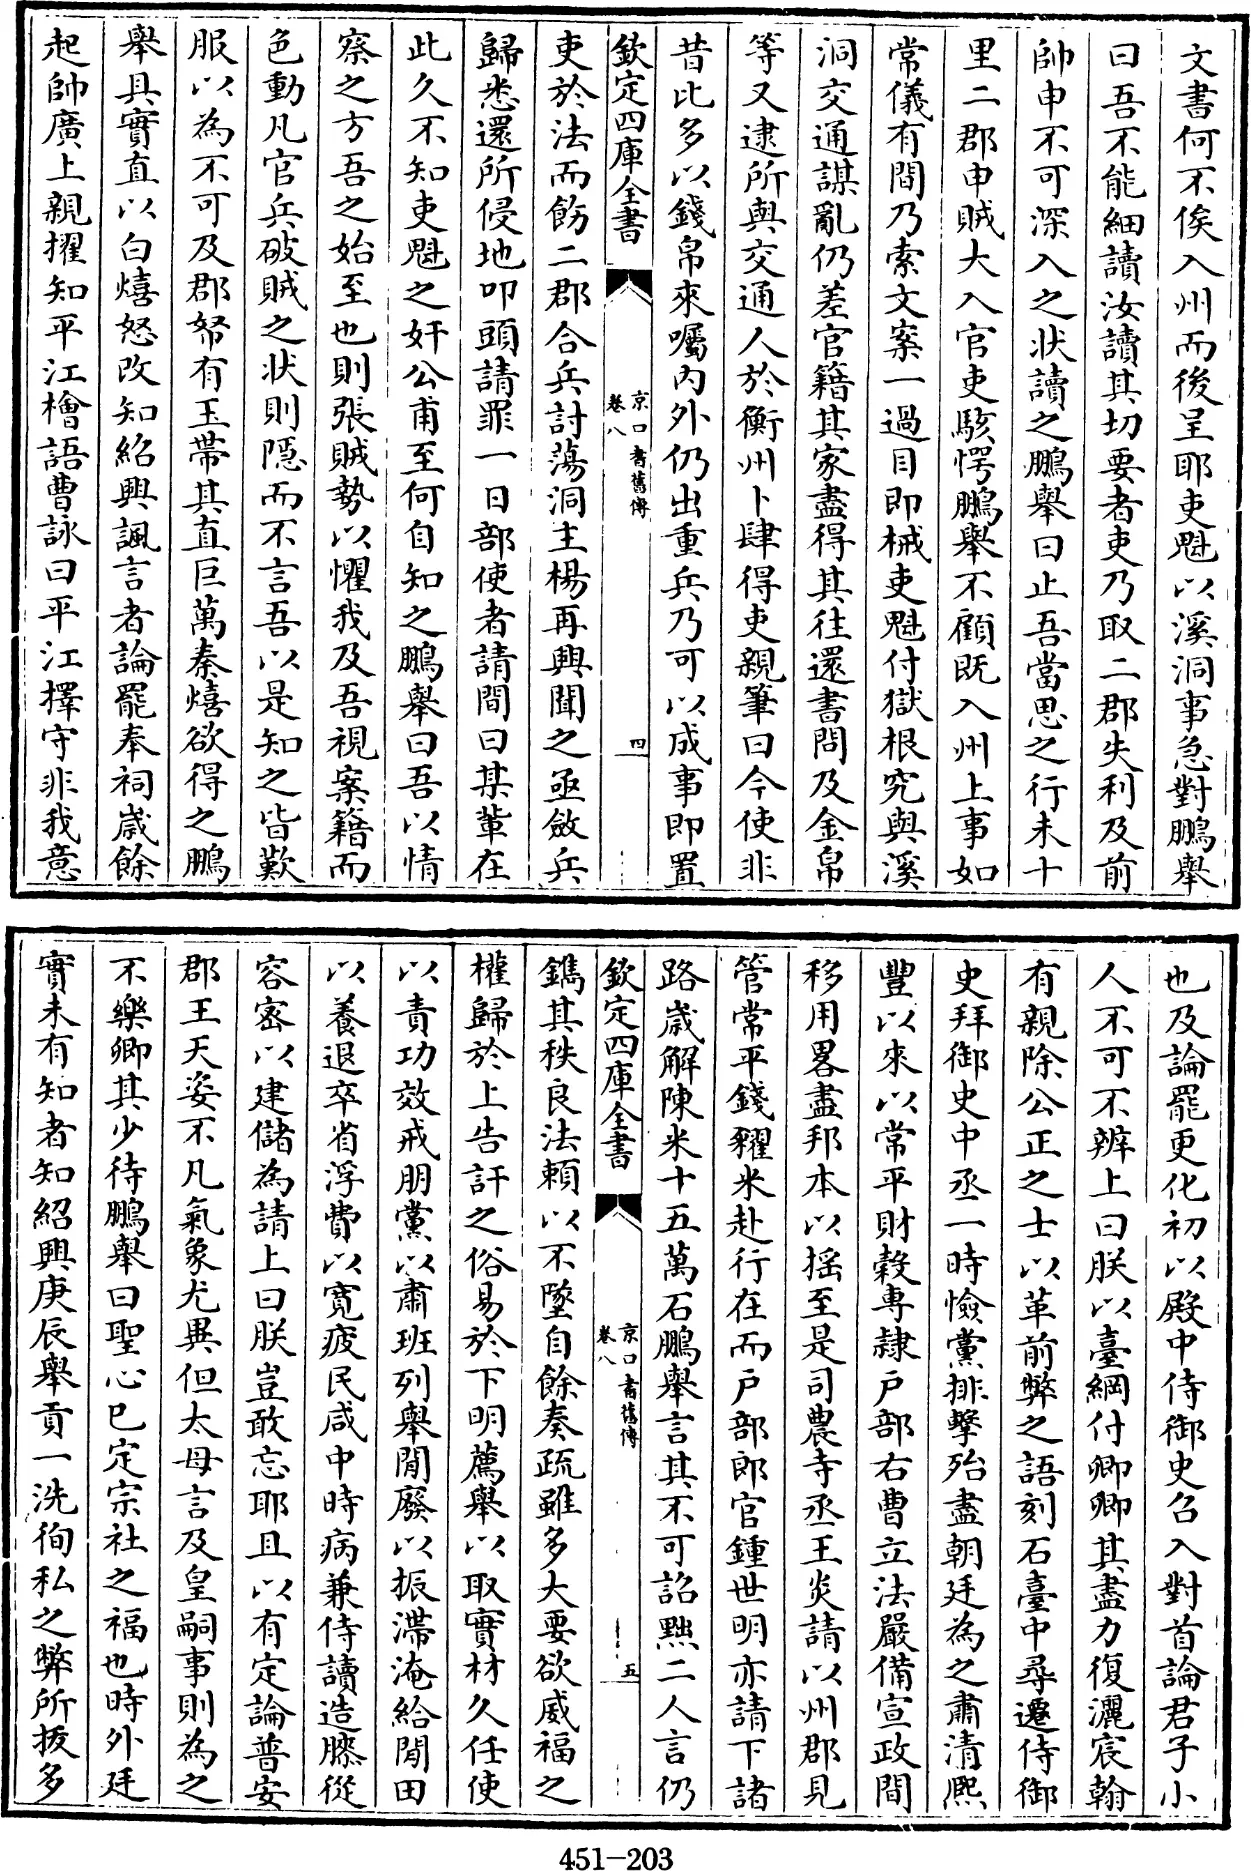 文書何不俟入州而後呈耶吏魁以溪洞事急對鵬舉
曰吾不能細讀汝讀其切要者吏乃取二郡失利及前
帥申不可深入之狀讀之鵬舉曰止吾當思之行未十
里二郡申賊大入官吏駭愕鵬舉不顧既入州上事如
常儀有間乃索文案一過目即械吏魁付獄根究與溪
洞交通謀亂仍差官籍其家盡得其往還書問及金帛
等又逮所與交通人於衡州卜肆得吏親筆曰今使非
昔比多以錢帛來囑內外仍出重兵乃可以成事即置
欽定四庫全書
京口耆舊傳
卷八
四
吏於法而飭二郡合兵討蕩洞主楊再興聞之亟斂兵
歸悉還所侵地叩頭請罪一日部使者請間曰某輩在
此久不知吏魁之奸公甫至何自知之鵬舉曰吾以情
察之方吾之始至也則張賊勢以懼我及吾視案籍而
色動凡官兵破賊之狀則隱而不言吾以是知之皆歎
服以為不可及郡帑有玉帶其直巨萬秦熺欲得之鵬
舉具實直以白熺怒改知紹興諷言者論罷奉祠歲餘
起帥廣上親擢知平江檜語曹詠曰平江擇守非我意
也及論罷更化初以殿中侍御史召入對首論君子小
人不可不辨上曰朕以臺綱付卿卿其盡力復灑宸翰
有親除公正之士以革前弊之語刻石臺中尋遷侍御
史拜御史中丞一時憸黨排擊殆盡朝廷為之肅清熈
豐以來以常平財穀專隸戶部右曹立法嚴備宣政間
移用畧盡邦本以搖至是司農寺丞王炎請以州郡見
管常平錢糴米赴行在而戶部郎官鍾世明亦請下諸
路歲解陳米十五萬石鵬舉言其不可詔黜二人言仍
欽定四庫全書
京口耆舊傳
卷八
五
鐫其秩良法賴以不墜自餘奏疏雖多大要欲威福之
權歸於上告訐之俗易於下明薦舉以取實材久任使
以責功效戒朋黨以肅班列舉閒廢以振滯淹給閒田
以養退卒省浮費以寬疲民咸中時病兼侍讀造膝從
容密以建儲為請上曰朕豈敢忘耶且以有定論普安
郡王天姿不凡氣象尤異但太母言及皇嗣事則為之
不樂卿其少待鵬舉曰聖心已定宗社之福也時外廷
實未有知者知紹興庚辰舉貢一洗徇私之弊所拔多
451-203